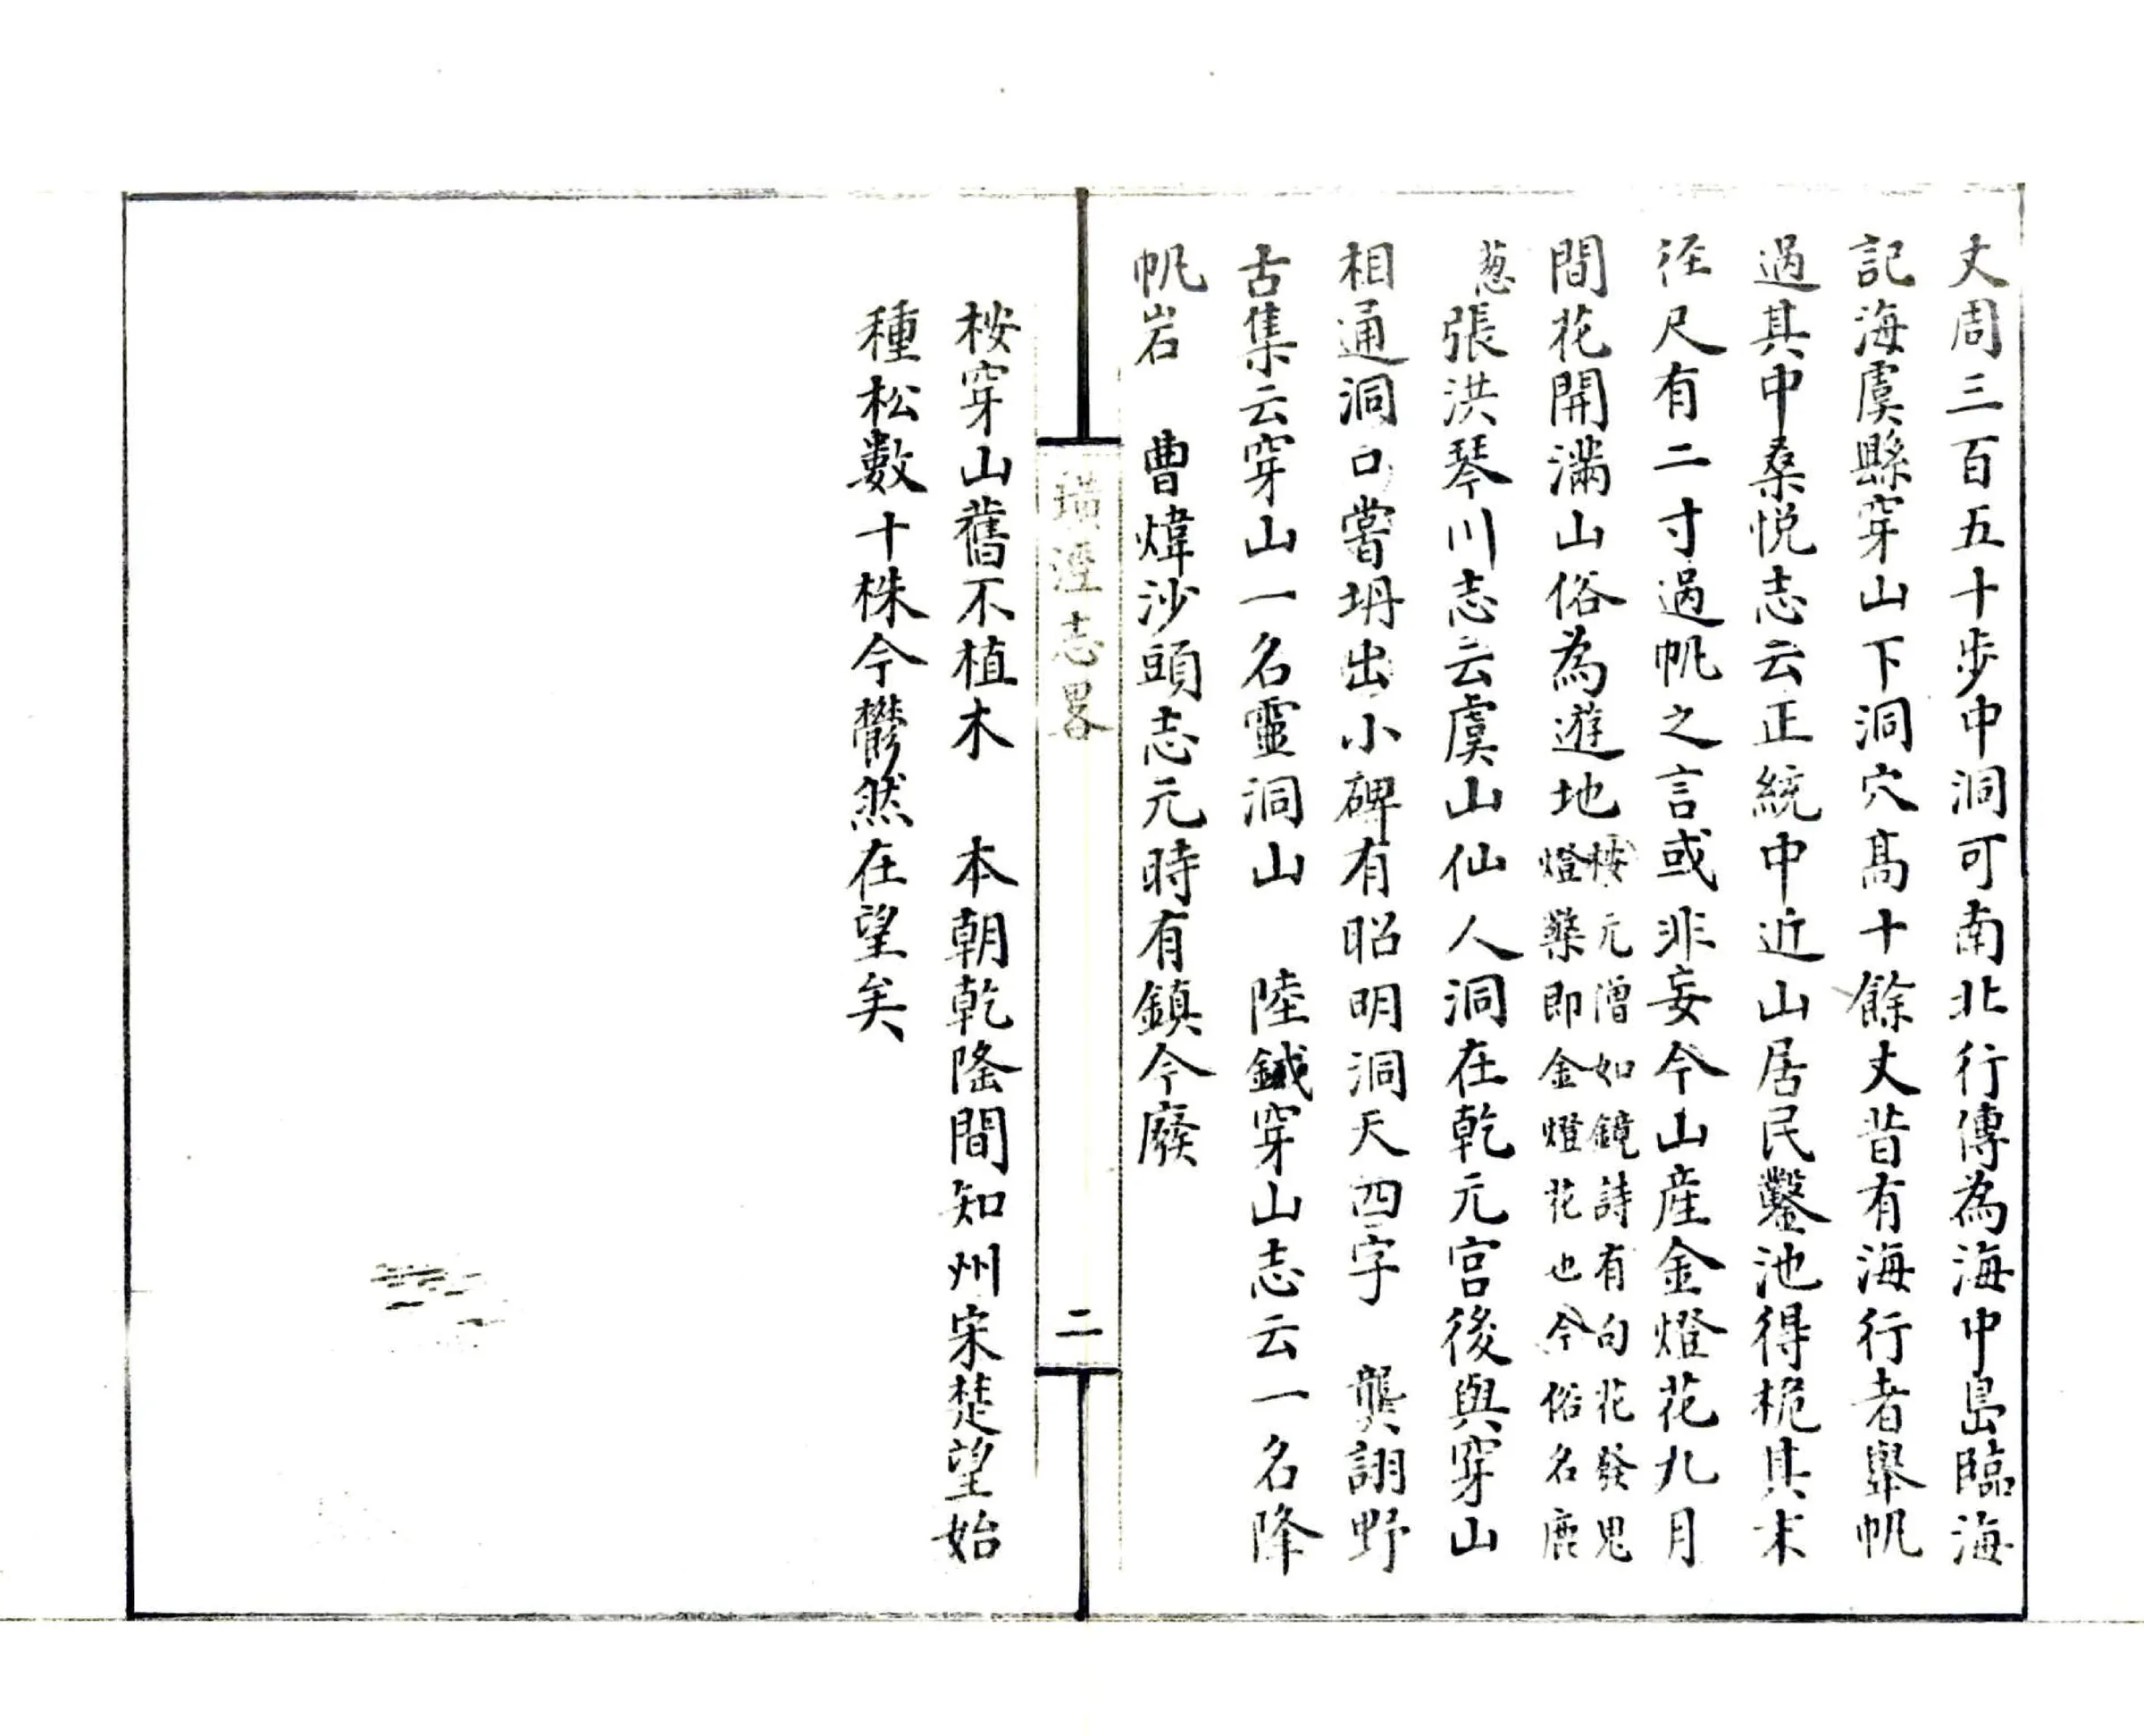 丈周三百五十步中洞可南北行傳為海中島臨海
記海虞縣穿山下洞穴高十餘丈昔有海行者舉帆
過其中桑悦志云正統中近山居民鑿池得桅其末
徑尺有二寸過帆之言或非妄今山産金燈花九月
間花開滿山俗為遊地桉元僧如鏡詩有句花發鬼
燈檠即金燈花也今俗名鹿
葱張洪琴川志云虞山仙人洞在乾元宫後與穿山
相通洞口嘗坍出小碑有昭明洞天四字 龔詡野
古集云穿山一名靈洞山 陸鉞穿山志云一名降
帆岩 曹煒沙頭志元時有鎮今廢
璜涇志畧
二
桉穿山舊不植木 本朝乾隆間知州宋楚望始
種松數十株今鬱然在望矣